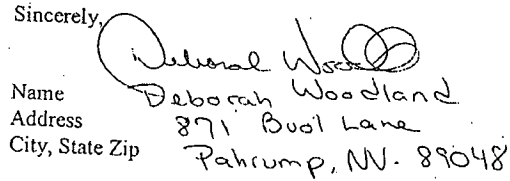 Sincerely,
Deborah Wood
Name Deborah Woodland
Address 871 Buol Lane
City, State Zip Pahrump, NV. 89048